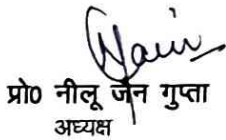 प्रो0 नीलू जैन गुप्ता
अध्यक्ष